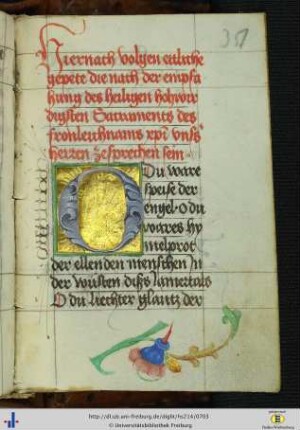 351
Hiernach volgen etliche
gepete die nach der empfa
hung des heiligen hohwir
digsten Sacraments des
fronleichnams xpi vnsers
herren zesprechen sein
O Du ware
speise der
engel O du
wares hy
melprot
der ellenden menschen Jn
der wüsten diss Jamertals
O du liechter glantz der
http://dl.ub.uni-freiburg.de/diglit/hs214/0703
© Universitätsbibliothek Freiburg